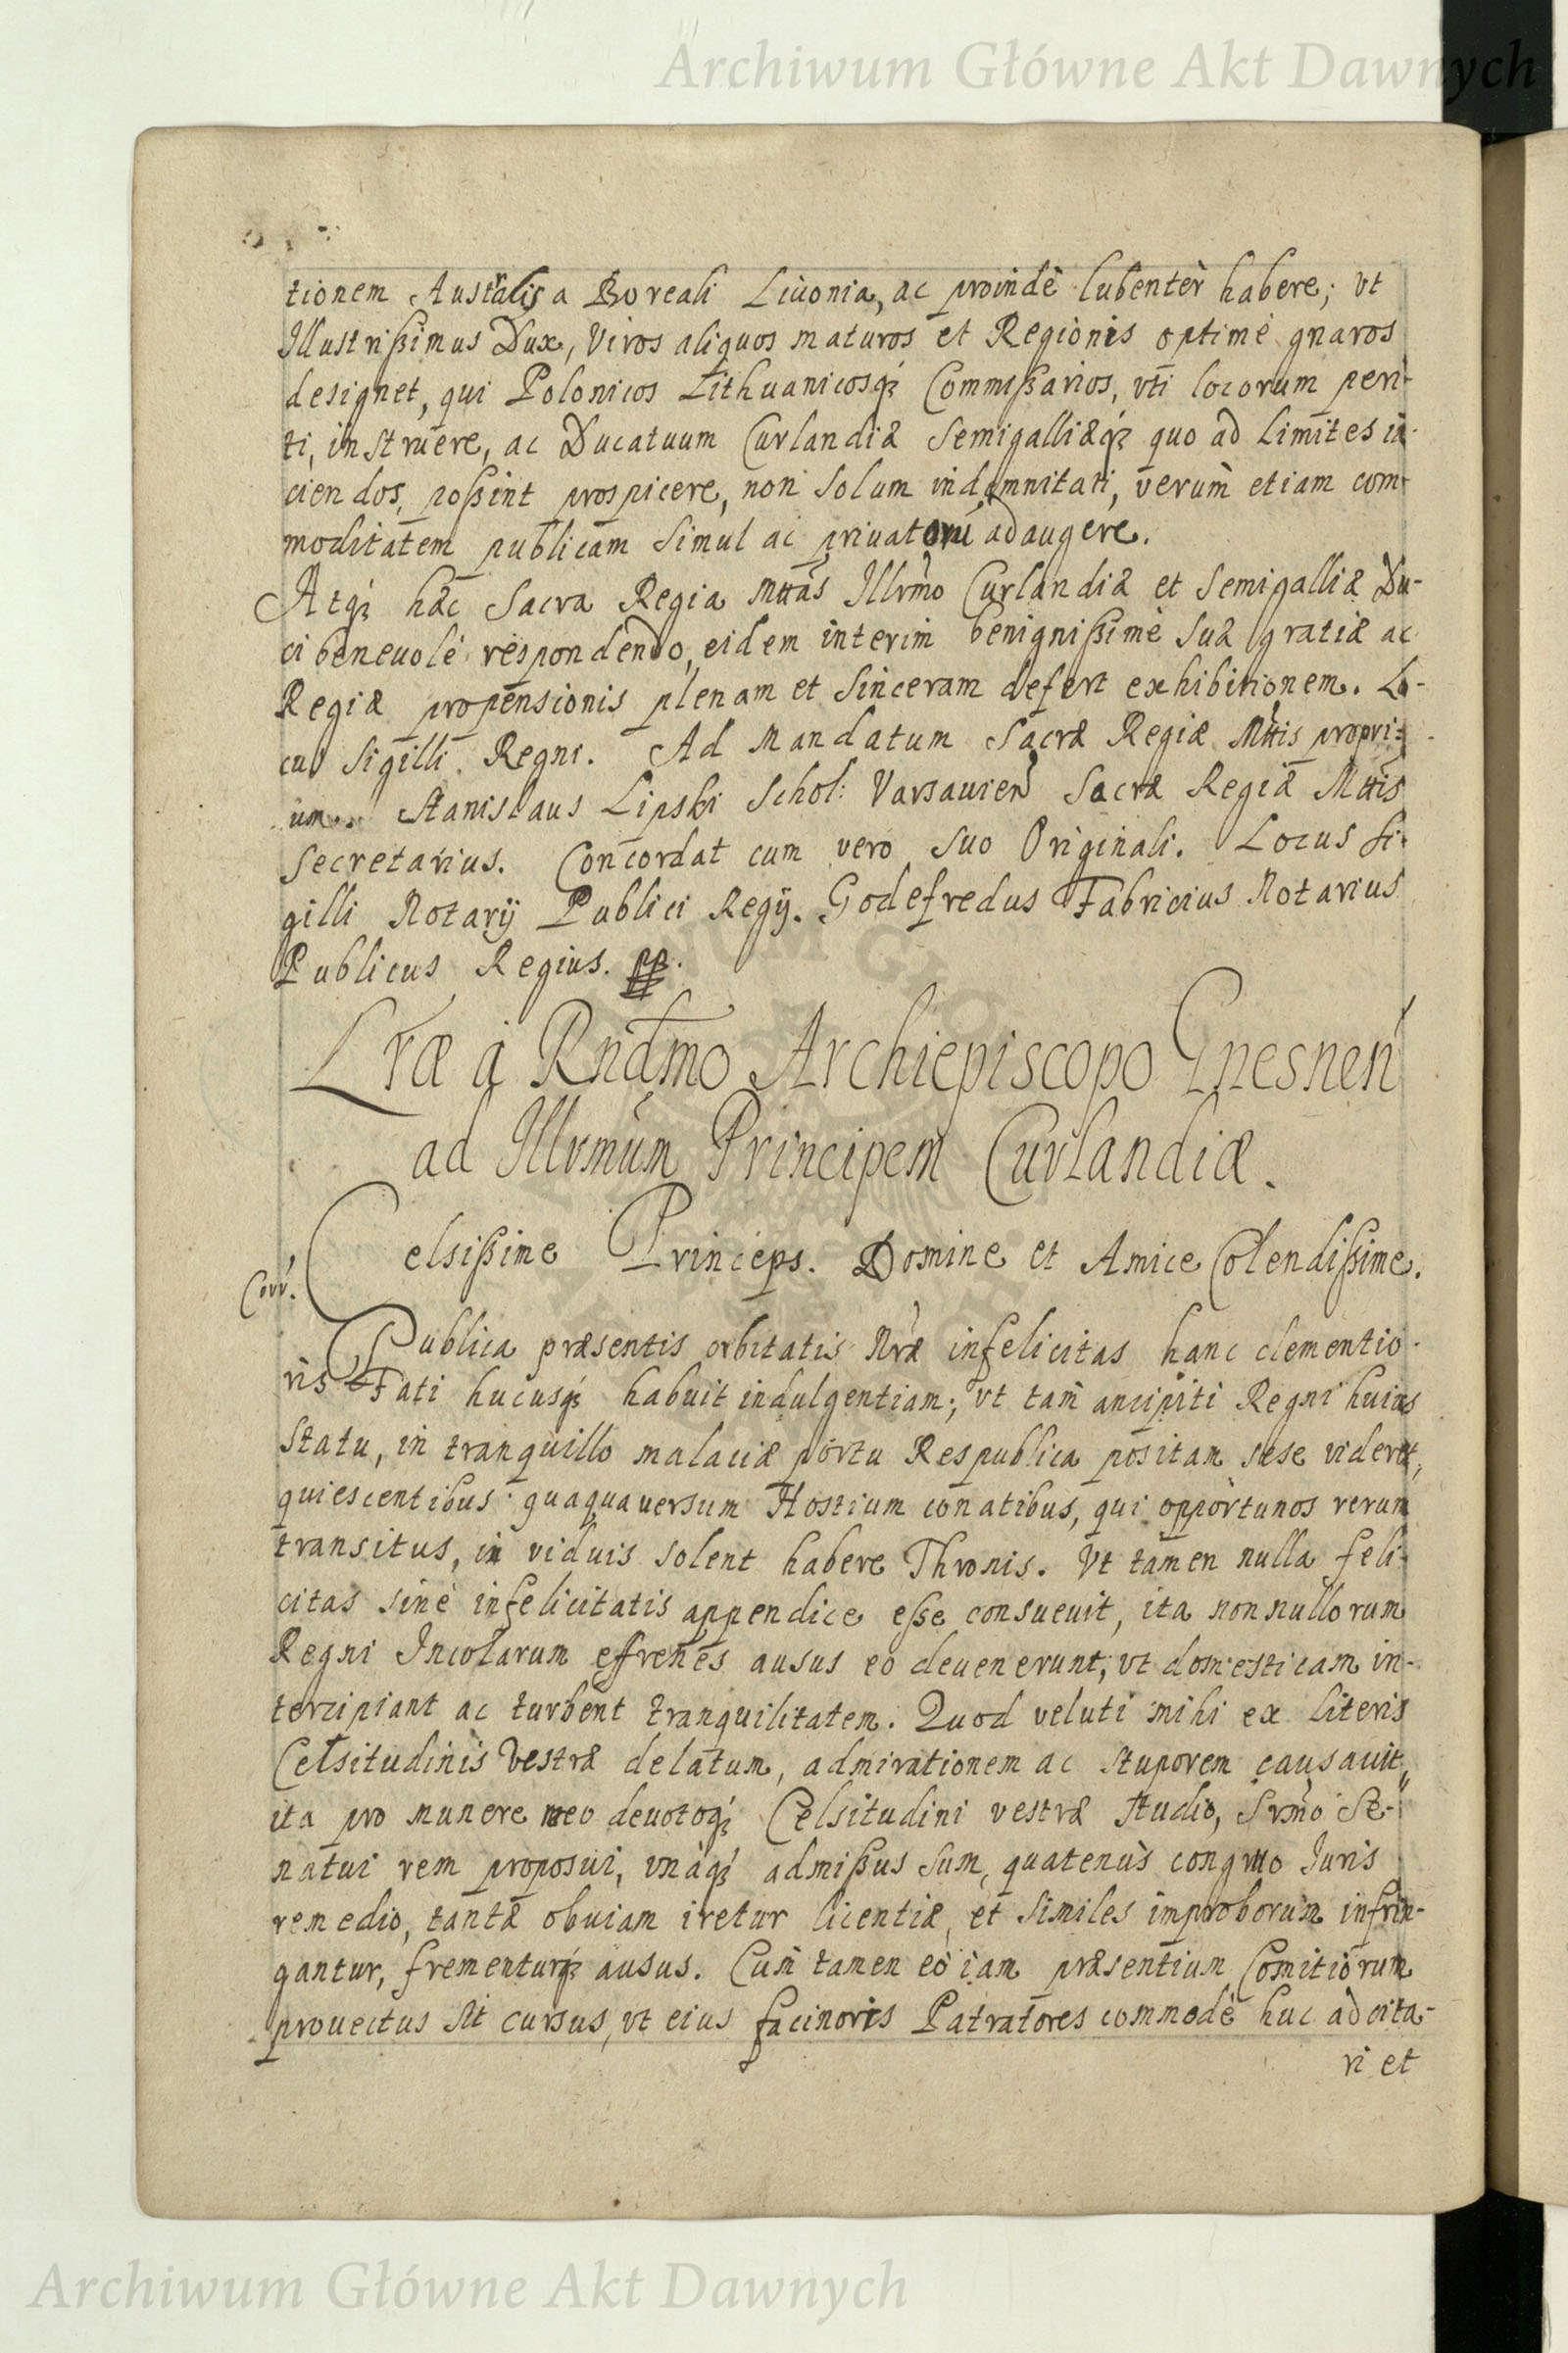 Archiwum Główne Akt Dawnych
tionem Australis a Boreali Liuonia, ac proindè lubentèr habere; vt
Illustrißimus Dux, Viros aliquos maturos et Regionis optimè gnaros
designet, qui Polonicos Lithuanicosq́ꝫ Commißarios, vti locorum peri-
ti, instruere, ac Ducatuum Curlandiæ Semigalliæq́ꝫ quo ad Limites ia-
ciendos, poßint prospicere, non solum indemnitati, verùm etiam com-
moditatem publicam simul ac priuatorũ adaugere.
Atq́ꝫ hæc Sacra Regia Mttas Illrmo Curlandiæ et Semigalliæ Du-
ci beneuolè respondendo, eidem interim benignißimè suæ gratiæ ac
Regiæ propensionis plenam et sinceram defert exhibitionem. Lo-
cus Sigilli Regni. Ad Mandatum Sacræ Regiæ Mttis propri-
um. Stanislaus Lipski Schol: Varsauien̄ Sacræ Regiæ Mttis
Secretarius. Concordat cum vero suo Originali. Locus si-
gilli Notarij Publici Regij. Godefredus Fabricius Notarius
Publicus Regius.
Lræ à Rndmo Archiepiscopo Gnesnen̄
ad Illrmum Principem Curlandiæ.
Celsißime Princeps. Domine et Amice Colendißime.
Publica præsentis orbitatis Nræ infelicitas hanc clementio-
ris Fati hucusq́ꝫ habuit indulgentiam; vt tam ancipiti Regni huius
statu, in tranquillo malaciæ portu Respublica positam sese videret,
quiescentibus quaquauersum Hostium conatibus, qui opportunos rerum
transitus, in viduis solent habere Thronis. Vt tamen nulla feli-
citas sinè infelicitatis appendice eße consueuit, ita nonnullorum
Regni Incolarum effrenes ausus eo deuenerunt, vt domesticam in-
tercipiant ac turbent tranquilitatem. Quod veluti mihi ex literis
Celsitudinis Vestræ delatum, admirationem ac stuporem causauit,
ita pro munere meo deuotoq́ꝫ Celsitudini vestræ studio, Srmo Se-
natui rem proposui, vnàq́ꝫ admißus sum, quatenùs congruo Iuris
remedio, tantæ obuiam iretur licentiæ, et similes improborum infrin-
gantur, frementurq́ꝫ ausus. Cum tamen eò iam præsentium Comitiorum
prouectus sit cursus, vt eius facinoris Patratores commodè huc adcita-
ri et
Archiwum Główne Akt Dawnych